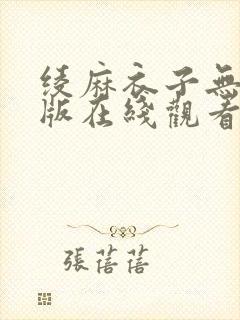 绫麻衣子無
版在綫觀看
張蓓蓓